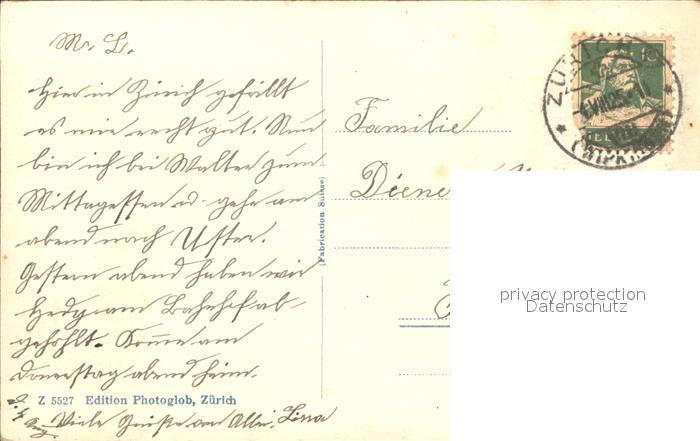 M. L.
Hier in Zürich gefällt
es mir recht gut. Nun
bin ich bei Walter zum
Mittagessen u. gehe am
abend nach Uster.
Gestern abend haben wir
Hedy am Bahnhof ab-
gehohlt. Komme am
Donnerstag abend heim.
Viele Grüsse von Allen, Lina
Z 5527 Edition Photoglob, Zürich
(Fabrication Suisse)
Familie
Diene
ZÜRICH
(WIPKINGEN)
10
privacy protection
Datenschutz